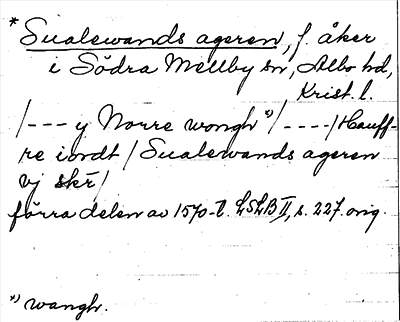 * Sualewands ageren, f. åker
i Södra Mellby sn, Albo hd,
Krist. l.
/--- y Norre wongh *)/----/Hauff-
re iordt / Sualewands ageren
vj skr̄ /
förra delen av 1570-t. LSLB II, s. 227. orig.
*) wangh.